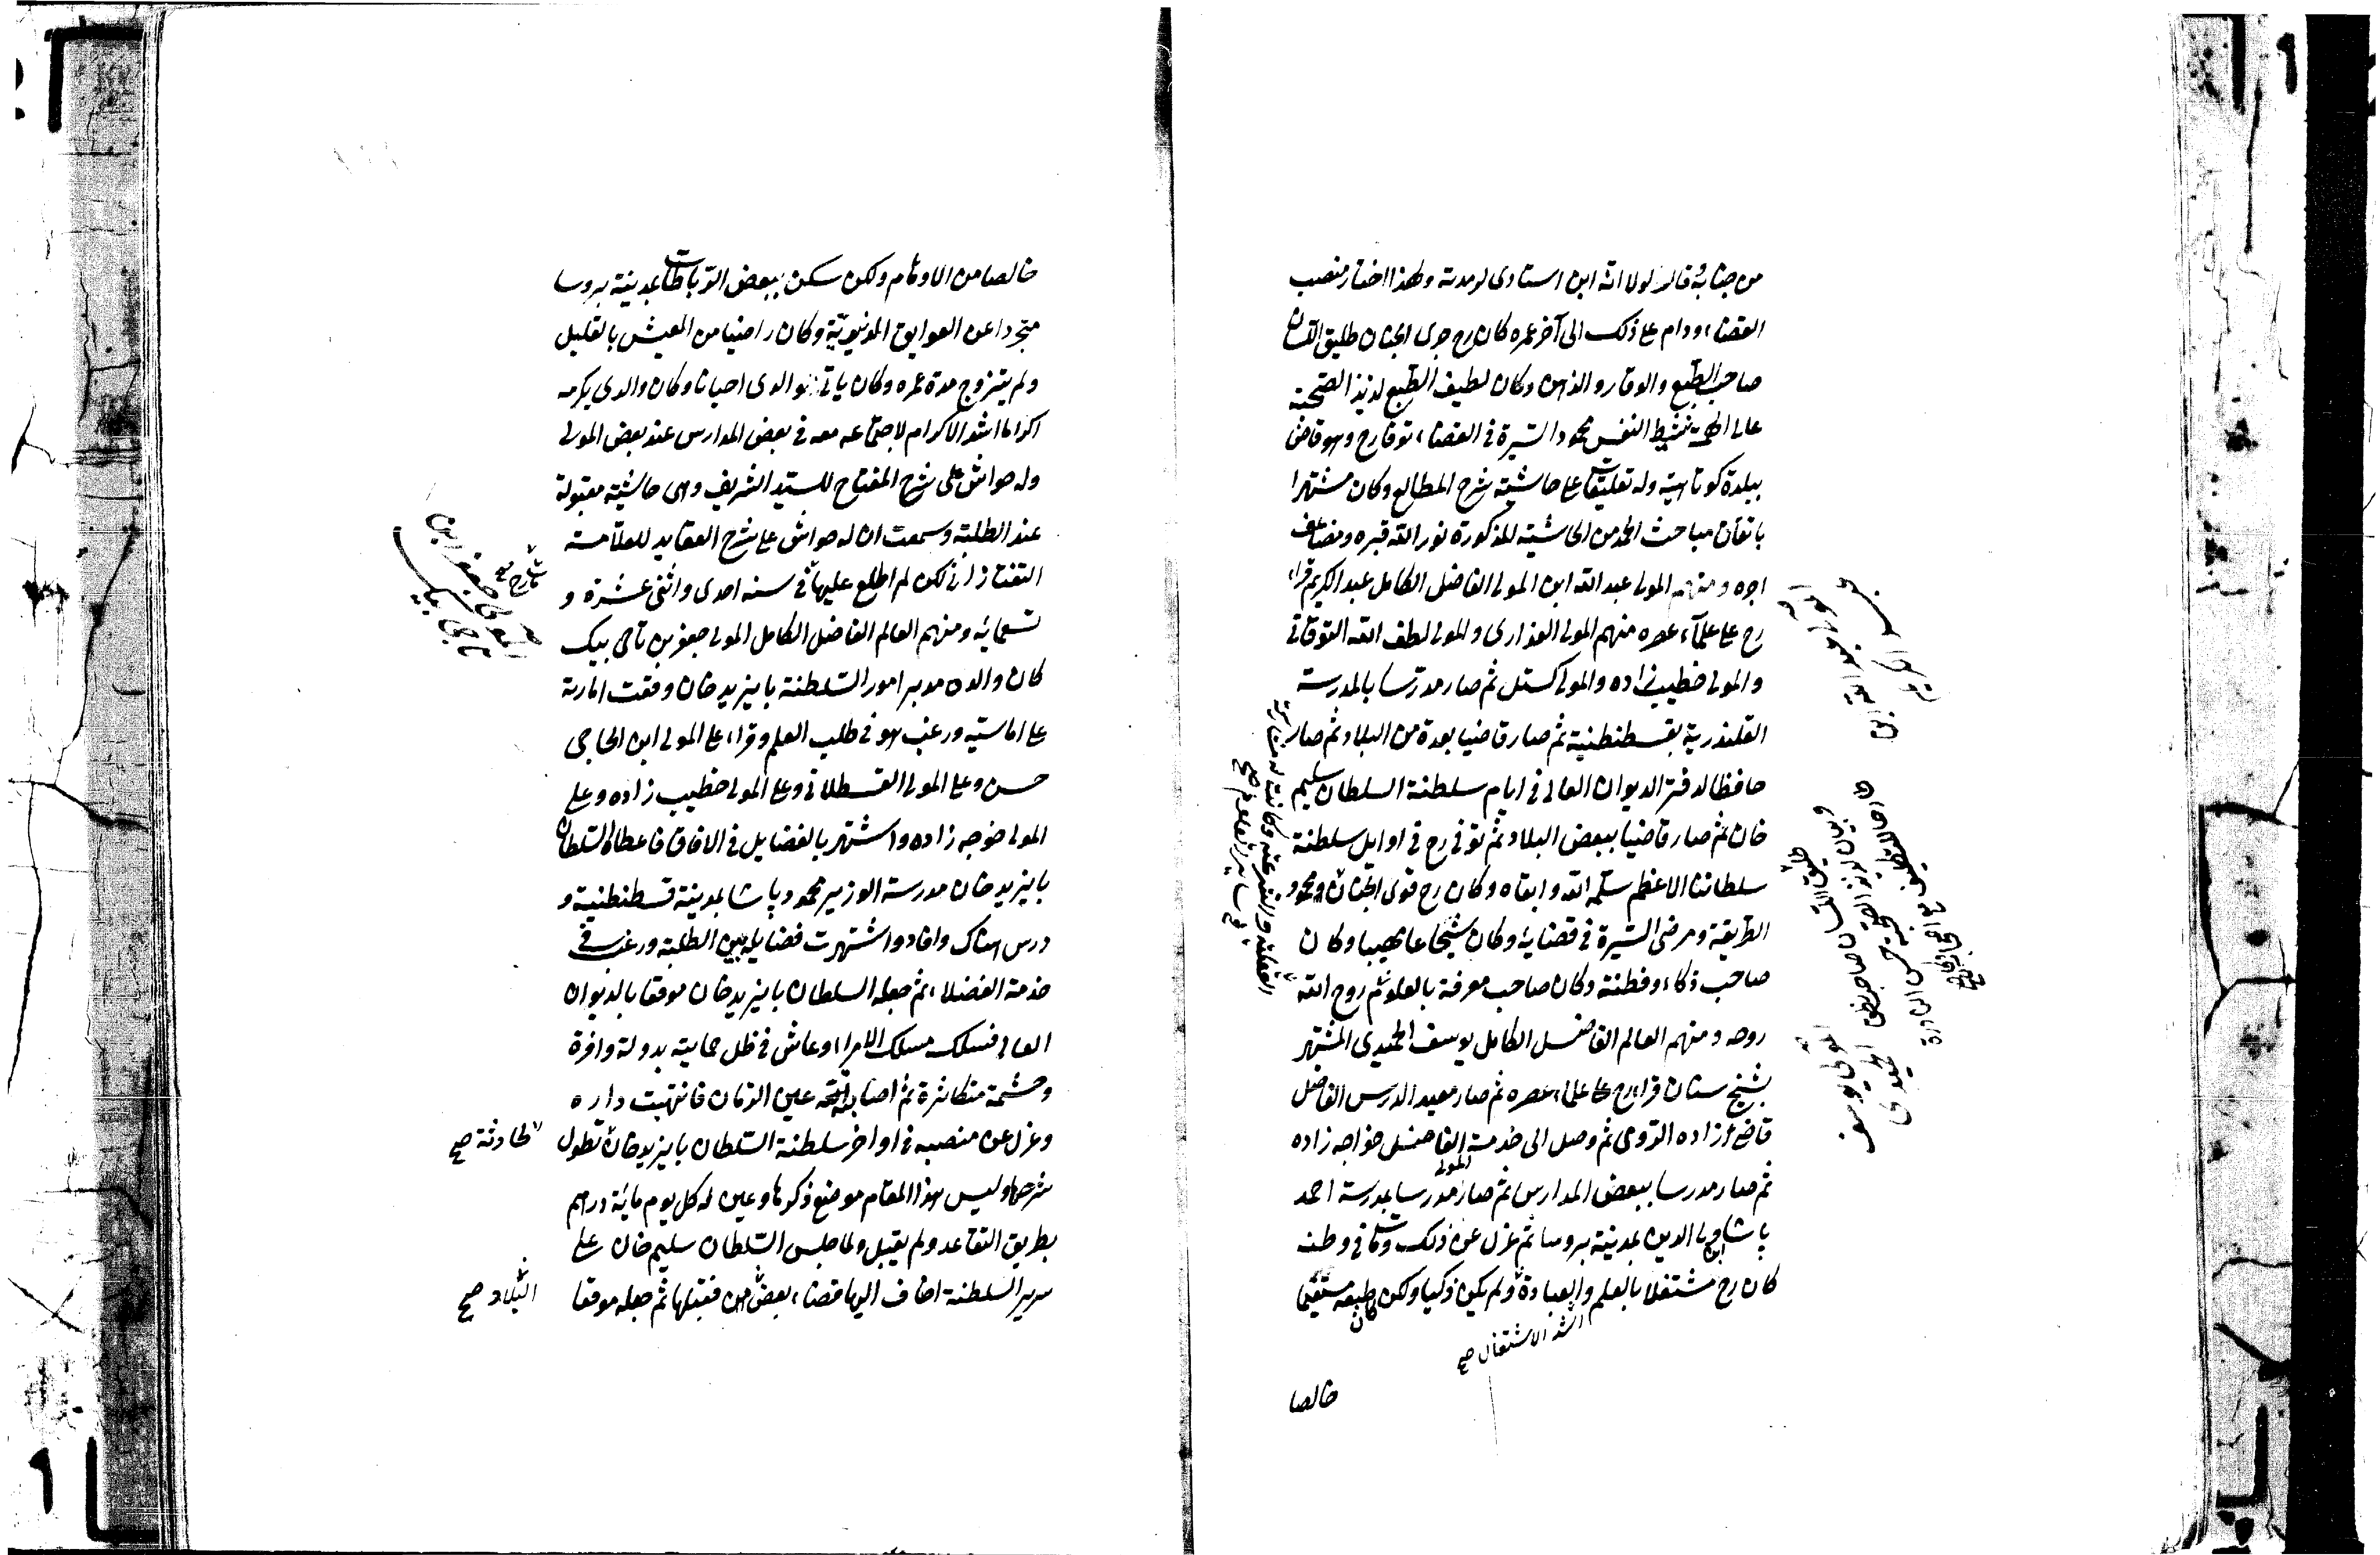 من جنابه قال لولا انه ابن استادى لرمدته ولهذا اختار منصب
القضاء ودام على ذلك الى آخر عمره كان رح جرى الجنان طليق اللسان
صاحب الطبع والوقار والذهن وكان لطيف الطبع لذيذ الصحبة
عالى الهمة نشيط النفس محمود السيرة فى القضاء توفى رح وهو قاض
ببلدة كوتاهية وله تعليقات على حاشية شرح المطالع وكان مشتهرا
باتقان مباحث الحمد من الحاشية المذكورة نور الله قبره وضاعف
اجره ومنهم المولى عبد الله ابن المولى الفاضل الكامل عبد الكريم قراء
رح على علماء عصره منهم المولى العذارى والمولى لطف الله التوقاتى
والمولى خطيب زاده والمولى كستلى ثم صار مدرسا بالمدرسة
القلندرية بقسطنطنية ثم صار قاضيا بعدة من البلاد ثم صار
حافظا لدفتر الديوان العالى فى ايام سلطنة السلطان سليم
خان ثم صار قاضيا ببعض البلاد ثم توفى رح فى اوايل سلطنة
سلطاننا الاعظم سلمه الله وابقاه وكان رح قوى الجنان ومحمود
الطريقة ومرضى السيرة فى قضايئه وكان شجاعا مهيبا وكان
صاحب ذكاء وفطنة وكان صاحب معرفة بالعلوم روح الله
روحه ومنهم العالم الفاضل الكامل يوسف الحميدى المشتهر
بشيخ سنان قراء رح على علماء عصره ثم صار معيد الدرس الفاضل
قاضى زاده الرومى ثم وصل الى خدمة المولى الفاضل خواجه زاده
ثم صار مدرسا ببعض المدارس ثم صار مدرسا بمدرسة احمد
باشا ابن ولى الدين بمدينة بروسا ثم عزل عن ذلك ومات فى وطنه
كان رح مشتغلا بالعلم والعبادة ولم يكن ذكيا ولكن كان طبعه مستقيما
اشد الاشتغال صح
خالصا
المولى عبد الله ابن
عبد الكريم
المولى يوسف
الحميدى
طليق اللسان
خالصا من الاوهام ولكن سكن ببعض الرباطات بمدينة بروسا
متجردا عن العوايق الدنيوية وكان راضيا من العيش بالقليل
ولم يتزوج مدة عمره وكان ياتى الى والدى احيانا وكان والدى يكرمه
اكراما اشد الاكرام لاجتماعه معه فى بعض المدارس عند بعض الموالى
وله حواش على شرح المفتاح للسيد الشريف وهى حاشية مقبولة
عند الطلبة وسمعت ان له حواش على شرح العقايد للعلامة
التفتازانى لكن لم اطلع عليها فى سنه احدى واثنى عشرة و
تسعمائه ومنهم العالم الفاضل الكامل المولى جعفر بن تاجى بيك
كان والده مدبر امور السلطنة بايزيد خان وقت امارته
على اماسيه ورغب هو فى طلب العلم وقراء على المولى ابن الحاجى
حسن وعلى المولى القسطلانى وعلى المولى خطيب زاده وعلى
المولى خوجه زاده واشتهر بالفضايل فى الافاق فاعطاه السلطان
بايزيد خان مدرسة الوزير محمود باشا بمدينة قسطنطنية و
درس هناك وافاد واشتهرت فضايله بين الطلبة ورغب فى
خدمة الفضلاء ثم جعله السلطان بايزيد خان موقعا بالديوان
العالى فسلك مسلك الامراء وعاش فى ظل حمايته بدولة وافرة
وحشمة متكاثرة ثم اصابته عين الزمان فانتهبت داره
وعزل عن منصبه فى اواخر سلطنة السلطان بايزيد خان تطول
شرحها وليس هذا المقام موضع ذكرها وعين له كل يوم مائة درهم
بطريق التقاعد ولم يقبل ولما جلس السلطان سليم خان على
سرير السلطنة اضاف اليها قضاء بعض من فقبلها ثم جعله موقعا
المولى جعفر بن
تاجى بيك
لحادثة صح
البلاد صح